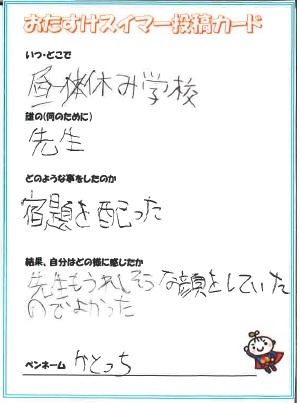 おたすけスイマー投稿カード
いつ・どこで
昼休み学校
誰の(何のために)
先生
どのような事をしたのか
宿題を配った
結果、自分はどの様に感じたか
先生もうれしそうな顔をしていた
のでよかった
ペンネーム かとっち